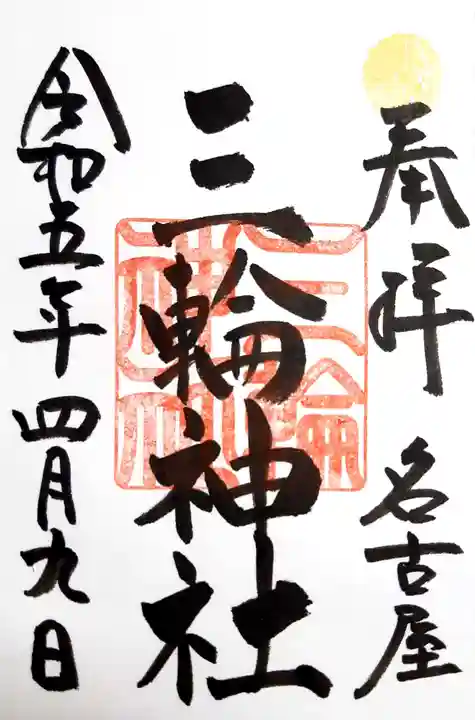 奉拝 名古屋
三輪神社
令和五年四月九日
三輪神社